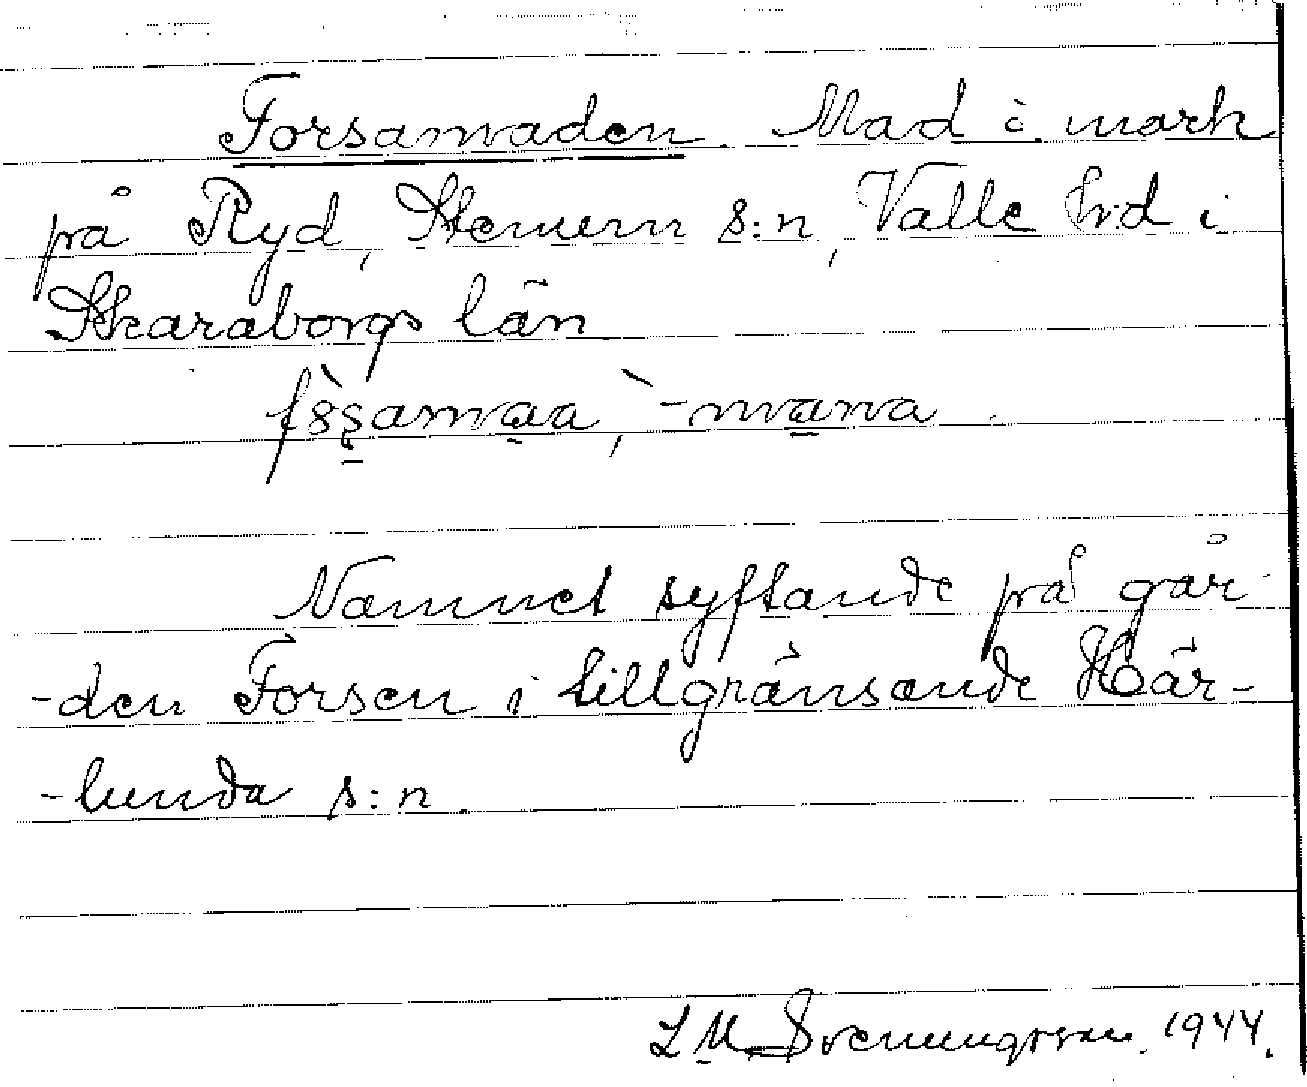 Forsamaden. Mad i mark
på Ryd, Stenum s:n, Valle hd i
Skaraborgs län
Namnet syftande på går-
-den Forsen i tillgränsande Här-
-lunda s:n
L M Svenungsson. 1944.